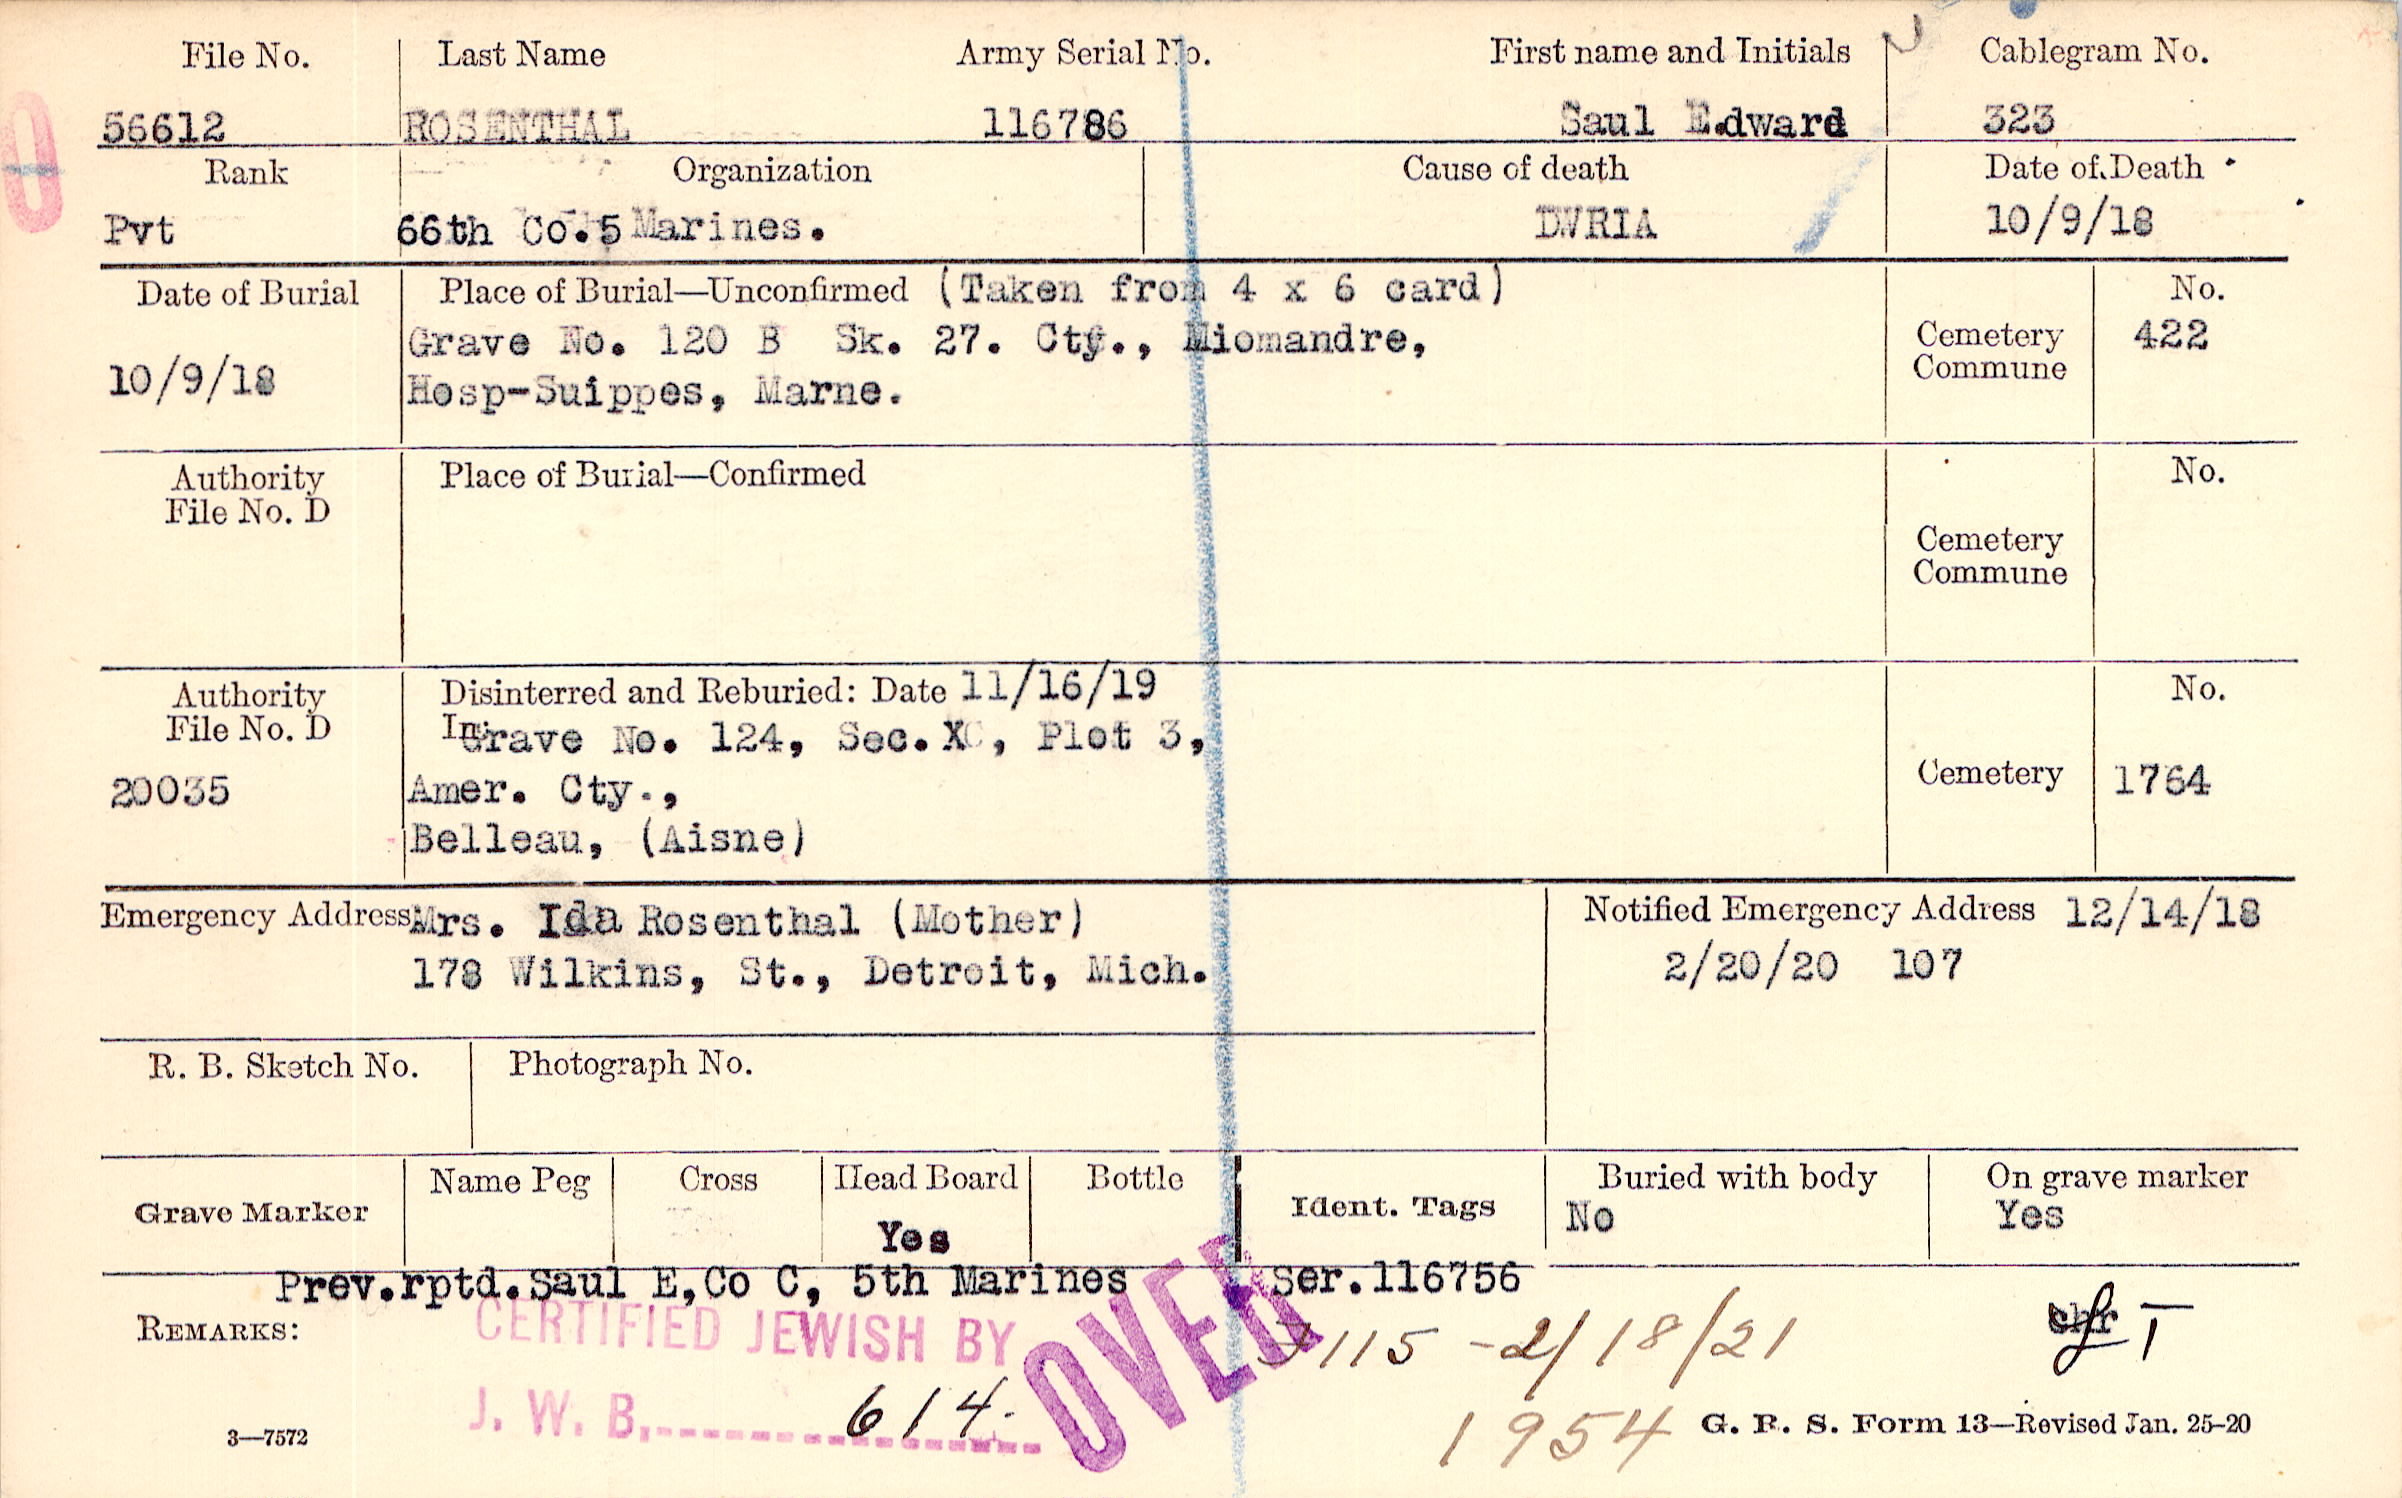 File No. Last Name Army Serial No. First name and Initials Cablegram No.
56612 ROSENTHAL 116786 Saul Edward 323
Rank Organization Cause of death Date of Death
Pvt 66th Co. 5 Marines. DWRIA 10/9/18
Date of Burial Place of Burial—Unconfirmed (Taken from 4 x 6 card) No.
Grave No. 120 B Sk. 27. Cty., Miomandre, Cemetery 422
10/9/18 Hosp-Suippes, Marne. Commune
Authority Place of Burial—Confirmed No.
File No. D
Cemetery
Commune
Authority Disinterred and Reburied: Date 11/16/19 No.
File No. D In Grave No. 124, Sec. X, Plot 3,
20035 Amer. Cty., Cemetery 1764
Belleau, (Aisne)
Emergency Address Mrs. Ida Rosenthal (Mother) Notified Emergency Address 12/14/18
178 Wilkins, St., Detroit, Mich. 2/20/20 107
R. B. Sketch No. Photograph No.
Grave Marker Name Peg Cross Head Board Bottle Ident. Tags Buried with body On grave marker
Yes No Yes
Prev.rptd.Saul E,Co C, 5th Marines Ser.116756
REMARKS: CERTIFIED JEWISH BY OVER 3115 -2/18/21
J. W. B. 614.
3—7572 1954 G. R. S. Form 13—Revised Jan. 25-20